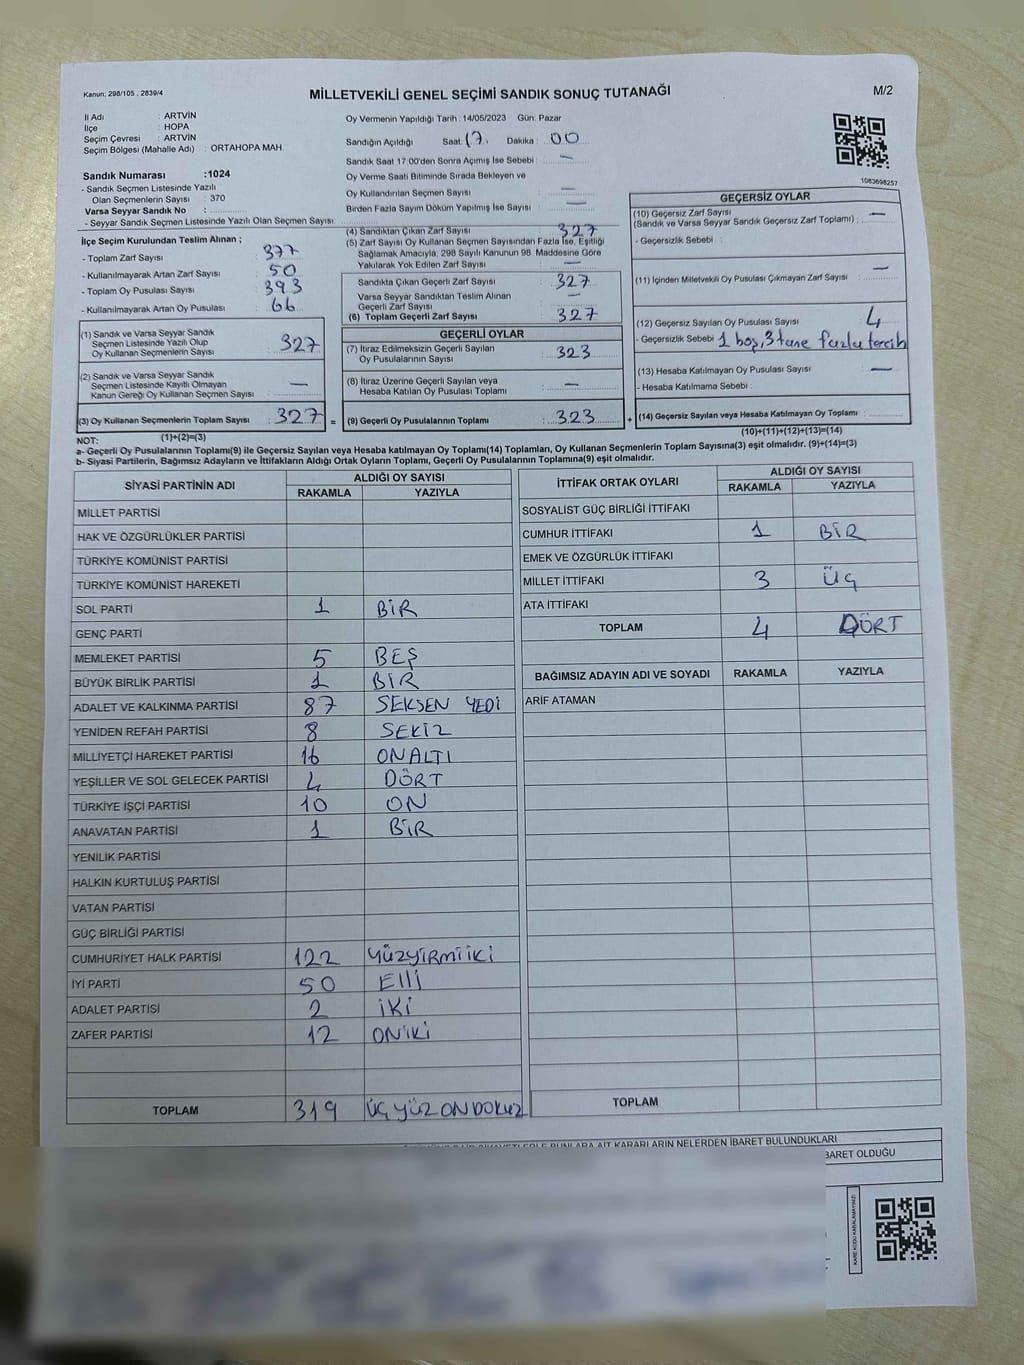 Kanun; 298/105 , 2839/4
MİLLETVEKİLİ GENEL SEÇİMİ SANDIK SONUÇ TUTANAĞI
M/2
İl Adı : ARTVİN
İlçe : HOPA
Seçim Çevresi : ARTVİN
Seçim Bölgesi (Mahalle Adı) : ORTAHOPA MAH.
Sandık Numarası :1024
- Sandık Seçmen Listesinde Yazılı
Olan Seçmenlerin Sayısı : 370
Varsa Seyyar Sandık No :
- Seyyar Sandık Seçmen Listesinde Yazılı Olan Seçmen Sayısı
Oy Vermenin Yapıldığı Tarih : 14/05/2023 Gün: Pazar
Sandığın Açıldığı Saat: 17. Dakika : 00
Sandık Saat 17.00'den Sonra Açımış İse Sebebi : —
Oy Verme Saati Bitiminde Sırada Bekleyen ve
Oy Kullandırılan Seçmen Sayısı : —
Birden Fazla Sayım Döküm Yapılmış İse Sayısı : —
1083698257
İlçe Seçim Kurulundan Teslim Alınan ;
- Toplam Zarf Sayısı : 377
- Kullanılmayarak Artan Zarf Sayısı : 50
- Toplam Oy Pusulası Sayısı : 393
- Kullanılmayarak Artan Oy Pusulası : 66
(1) Sandık ve Varsa Seyyar Sandık
Seçmen Listesinde Yazılı Olup
Oy Kullanan Seçmenlerin Sayısı : 327
(2) Sandık ve Varsa Seyyar Sandık
Seçmen Listesinde Kayıtlı Olmayan
Kanun Gereği Oy Kullanan Seçmen Sayısı : —
(3) Oy Kullanan Seçmenlerin Toplam Sayısı : 327
(1)+(2)=(3)
(4) Sandıktan Çıkan Zarf Sayısı : 327
(5) Zarf Sayısı Oy Kullanan Seçmen Sayısından Fazla İse, Eşitliği
Sağlamak Amacıyla, 298 Sayılı Kanunun 98. Maddesine Göre
Yakılarak Yok Edilen Zarf Sayısı : —
Sandıkta Çıkan Geçerli Zarf Sayısı : 327
Varsa Seyyar Sandıktan Teslim Alınan
Geçerli Zarf Sayısı : —
(6) Toplam Geçerli Zarf Sayısı : 327
GEÇERLİ OYLAR
(7) İtiraz Edilmeksizin Geçerli Sayılan
Oy Pusulalarının Sayısı : 323
(8) İtiraz Üzerine Geçerli Sayılan veya
Hesaba Katılan Oy Pusulası Toplamı : —
= (9) Geçerli Oy Pusulalarının Toplamı : 323
GEÇERSİZ OYLAR
(10) Geçersiz Zarf Sayısı : —
(Sandık ve Varsa Seyyar Sandık Geçersiz Zarf Toplamı)
- Geçersizlik Sebebi :
(11) İçinden Milletvekili Oy Pusulası Çıkmayan Zarf Sayısı : —
(12) Geçersiz Sayılan Oy Pusulası Sayısı : 4
- Geçersizlik Sebebi : 1 boş, 3 tane fazla tercih
(13) Hesaba Katılmayan Oy Pusulası Sayısı : —
- Hesaba Katılmama Sebebi :
+ (14) Geçersiz Sayılan veya Hesaba Katılmayan Oy Toplamı :
(10)+(11)+(12)+(13)=(14)
NOT:
a- Geçerli Oy Pusulaları Toplamı(9) ile Geçersiz Sayılan veya Hesaba katılmayan Oy Toplamı(14) Toplamları, Oy Kullanan Seçmenlerin Toplam Sayısına(3) eşit olmalıdır. (9)+(14)=(3)
b- Siyasi Partilerin, Bağımsız Adayların ve İttifakların Aldığı Ortak Oyların Toplamı, Geçerli Oy Pusulalarının Toplamına(9) eşit olmalıdır.
SİYASİ PARTİNİN ADI ALDIĞI OY SAYISI
RAKAMLA YAZIYLA
MİLLET PARTİSİ
HAK VE ÖZGÜRLÜKLER PARTİSİ
TÜRKİYE KOMÜNİST PARTİSİ
TÜRKİYE KOMÜNİST HAREKETİ
SOL PARTİ 1 BİR
GENÇ PARTİ
MEMLEKET PARTİSİ 5 BEŞ
BÜYÜK BİRLİK PARTİSİ 1 BİR
ADALET VE KALKINMA PARTİSİ 87 SEKSEN YEDİ
YENİDEN REFAH PARTİSİ 8 SEKİZ
MİLLİYETÇİ HAREKET PARTİSİ 16 ONALTI
YEŞİLLER VE SOL GELECEK PARTİSİ 4 DÖRT
TÜRKİYE İŞÇİ PARTİSİ 10 ON
ANAVATAN PARTİSİ 1 BİR
YENİLİK PARTİSİ
HALKIN KURTULUŞ PARTİSİ
VATAN PARTİSİ
GÜÇ BİRLİĞİ PARTİSİ
CUMHURİYET HALK PARTİSİ 122 YÜZYİRMİİKİ
İYİ PARTİ 50 Elli
ADALET PARTİSİ 2 İKİ
ZAFER PARTİSİ 12 ONİKİ
TOPLAM 319 ÜÇYÜZ ONDOKUZ
İTTİFAK ORTAK OYLARI ALDIĞI OY SAYISI
RAKAMLA YAZIYLA
SOSYALİST GÜÇ BİRLİĞİ İTTİFAKI
CUMHUR İTTİFAKI 1 BİR
EMEK VE ÖZGÜRLÜK İTTİFAKI
MİLLET İTTİFAKI 3 ÜÇ
ATA İTTİFAKI
TOPLAM 4 DÖRT
BAĞIMSIZ ADAYIN ADI VE SOYADI RAKAMLA YAZIYLA
ARİF ATAMAN
TOPLAM
BUNLARA AİT KARARLARIN NELERDEN İBARET BULUNDUKLARI
OLDUĞU